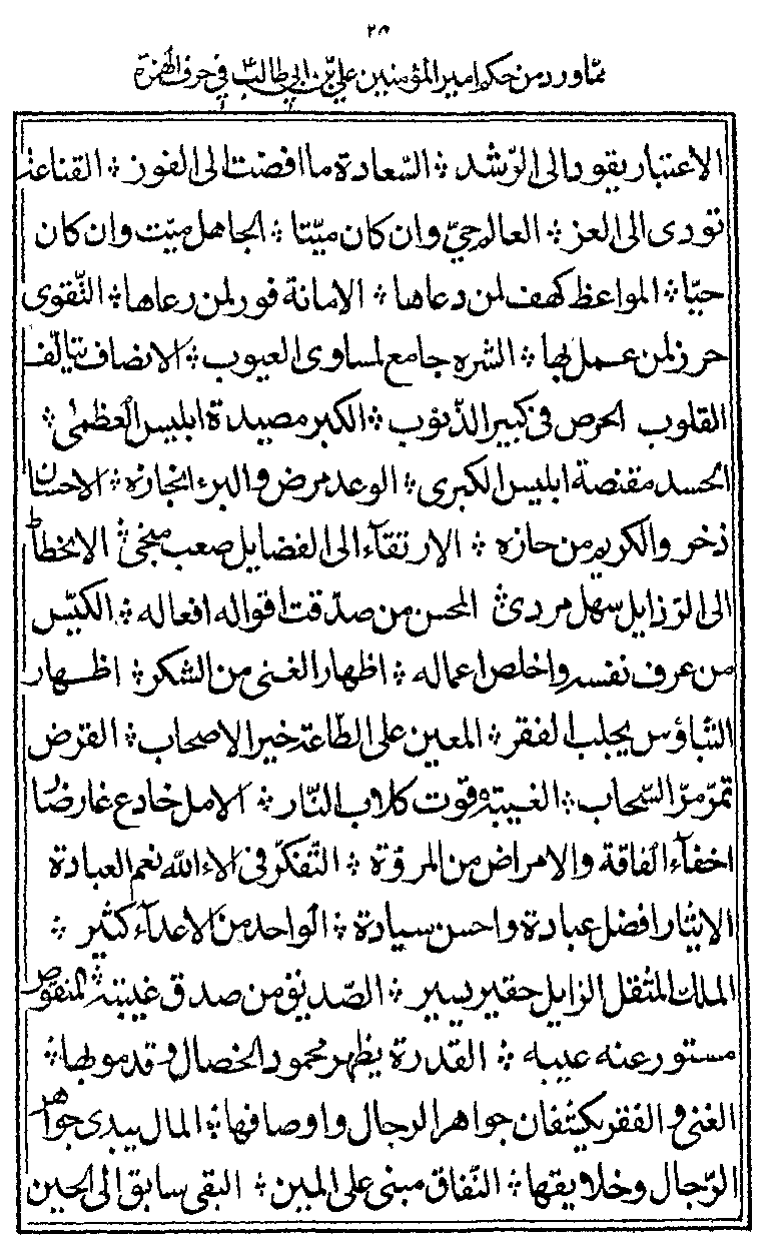 ٢٥
مما ورد من حكم امير المؤمنين علي بن ابي طالب في حرف الهمزة
الاعتبار يقود الى الرّشد ؞ السّعادة ما افضت الى الفوز ؞ القناعة
تودى الى العز ؞ العالم حيّ وان كان ميّتا ؞ الجاهل ميّت وان كان
حيّا ؞ المواعظ كهف لمن دعاها ؞ الامانة فور لمن رعاها ؞ التّقوى
حرز لمن عمل بها ؞ الشره جامع لمساوى العيوب ؞ الانصاف يتالّف
القلوب الحرص فى كبير الذّنوب ؞ الكبر مصيدة ابليس العظمى ؞
الحسد مقنصة ابليس الكبرى ؞ الوعد مرض والبرء انجازه ؞ الاحسان
ذخر والكريم من حازه ؞ الارتقآء الى الفضايل صعب منجى ؞ الانحطاط
الى الرّذايل سهل مردى ؞ المحسن من صدّقت اقواله افعاله ؞ الكيّس
من عرف نفسه واخلص اعماله ؞ اظهار الغنى من الشكر ؞ اظهار
التباؤس يجلب الفقر ؞ المعين على الطّاعة خير الاصحاب ؞ الفرض
تمرّ مرّ السّحاب ؞ الغيبة قوت كلاب النّار ؞ الامل خادع غار ضار
اخفآء الفاقة والامراض من المروّة ؞ التّفكّر فى الاء الله نعم العبادة
الايثار افضل عبادة واحسن سيادة ؞ الواحد من الاعدآء كثير ؞
الملك المثقل الزايل حقير يسير ؞ الصّديق من صدق غيبته ؞ المنقوص
مستور عنه عيبه ؞ القدرة يظهر محمود الخصال و قدمومها ؞
الغنى و الفقر يكشفان جواهر الرجال واوصافها ؞ المال يبدى جواهر
الرّجال وخلايقها ؞ النّفاق مبنى على المين ؞ البقى سابق الى الحين